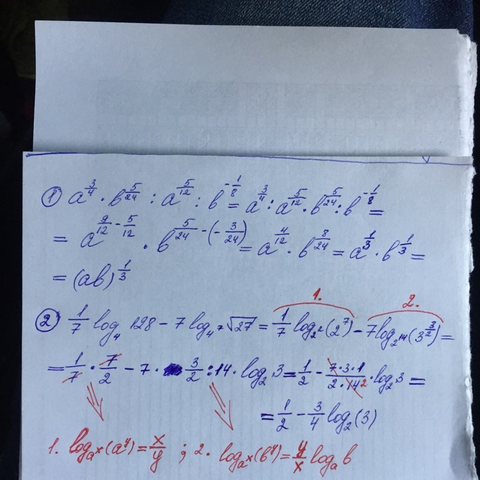 ① a^(3/4) · b^(5/24) : a^(5/12) : b^(-1/8) = a^(3/4) : a^(5/12) · b^(5/24) : b^(-1/8) =
= a^(9/12 - 5/12) · b^(5/24 - (-3/24)) = a^(4/12) · b^(8/24) = a^(1/3) · b^(1/3) =
= (ab)^(1/3)
1. 2.
② 1/7 log₄ 128 - 7 log₄⁷ √27 = 1/7 log_(2²)(2⁷) - 7 log_(2¹⁴)(3^(3/2)) =
= 1/7 · 7/2 - 7 · 3/2 : 14 · log₂ 3 = 1/2 - (7·3·1)/(2·14 2) · log₂ 3 =
= 1/2 - 3/4 log₂(3)
1. log_(a^x)(a^y) = x/y ; 2. log_(a^x)(b^y) = y/x log_a b